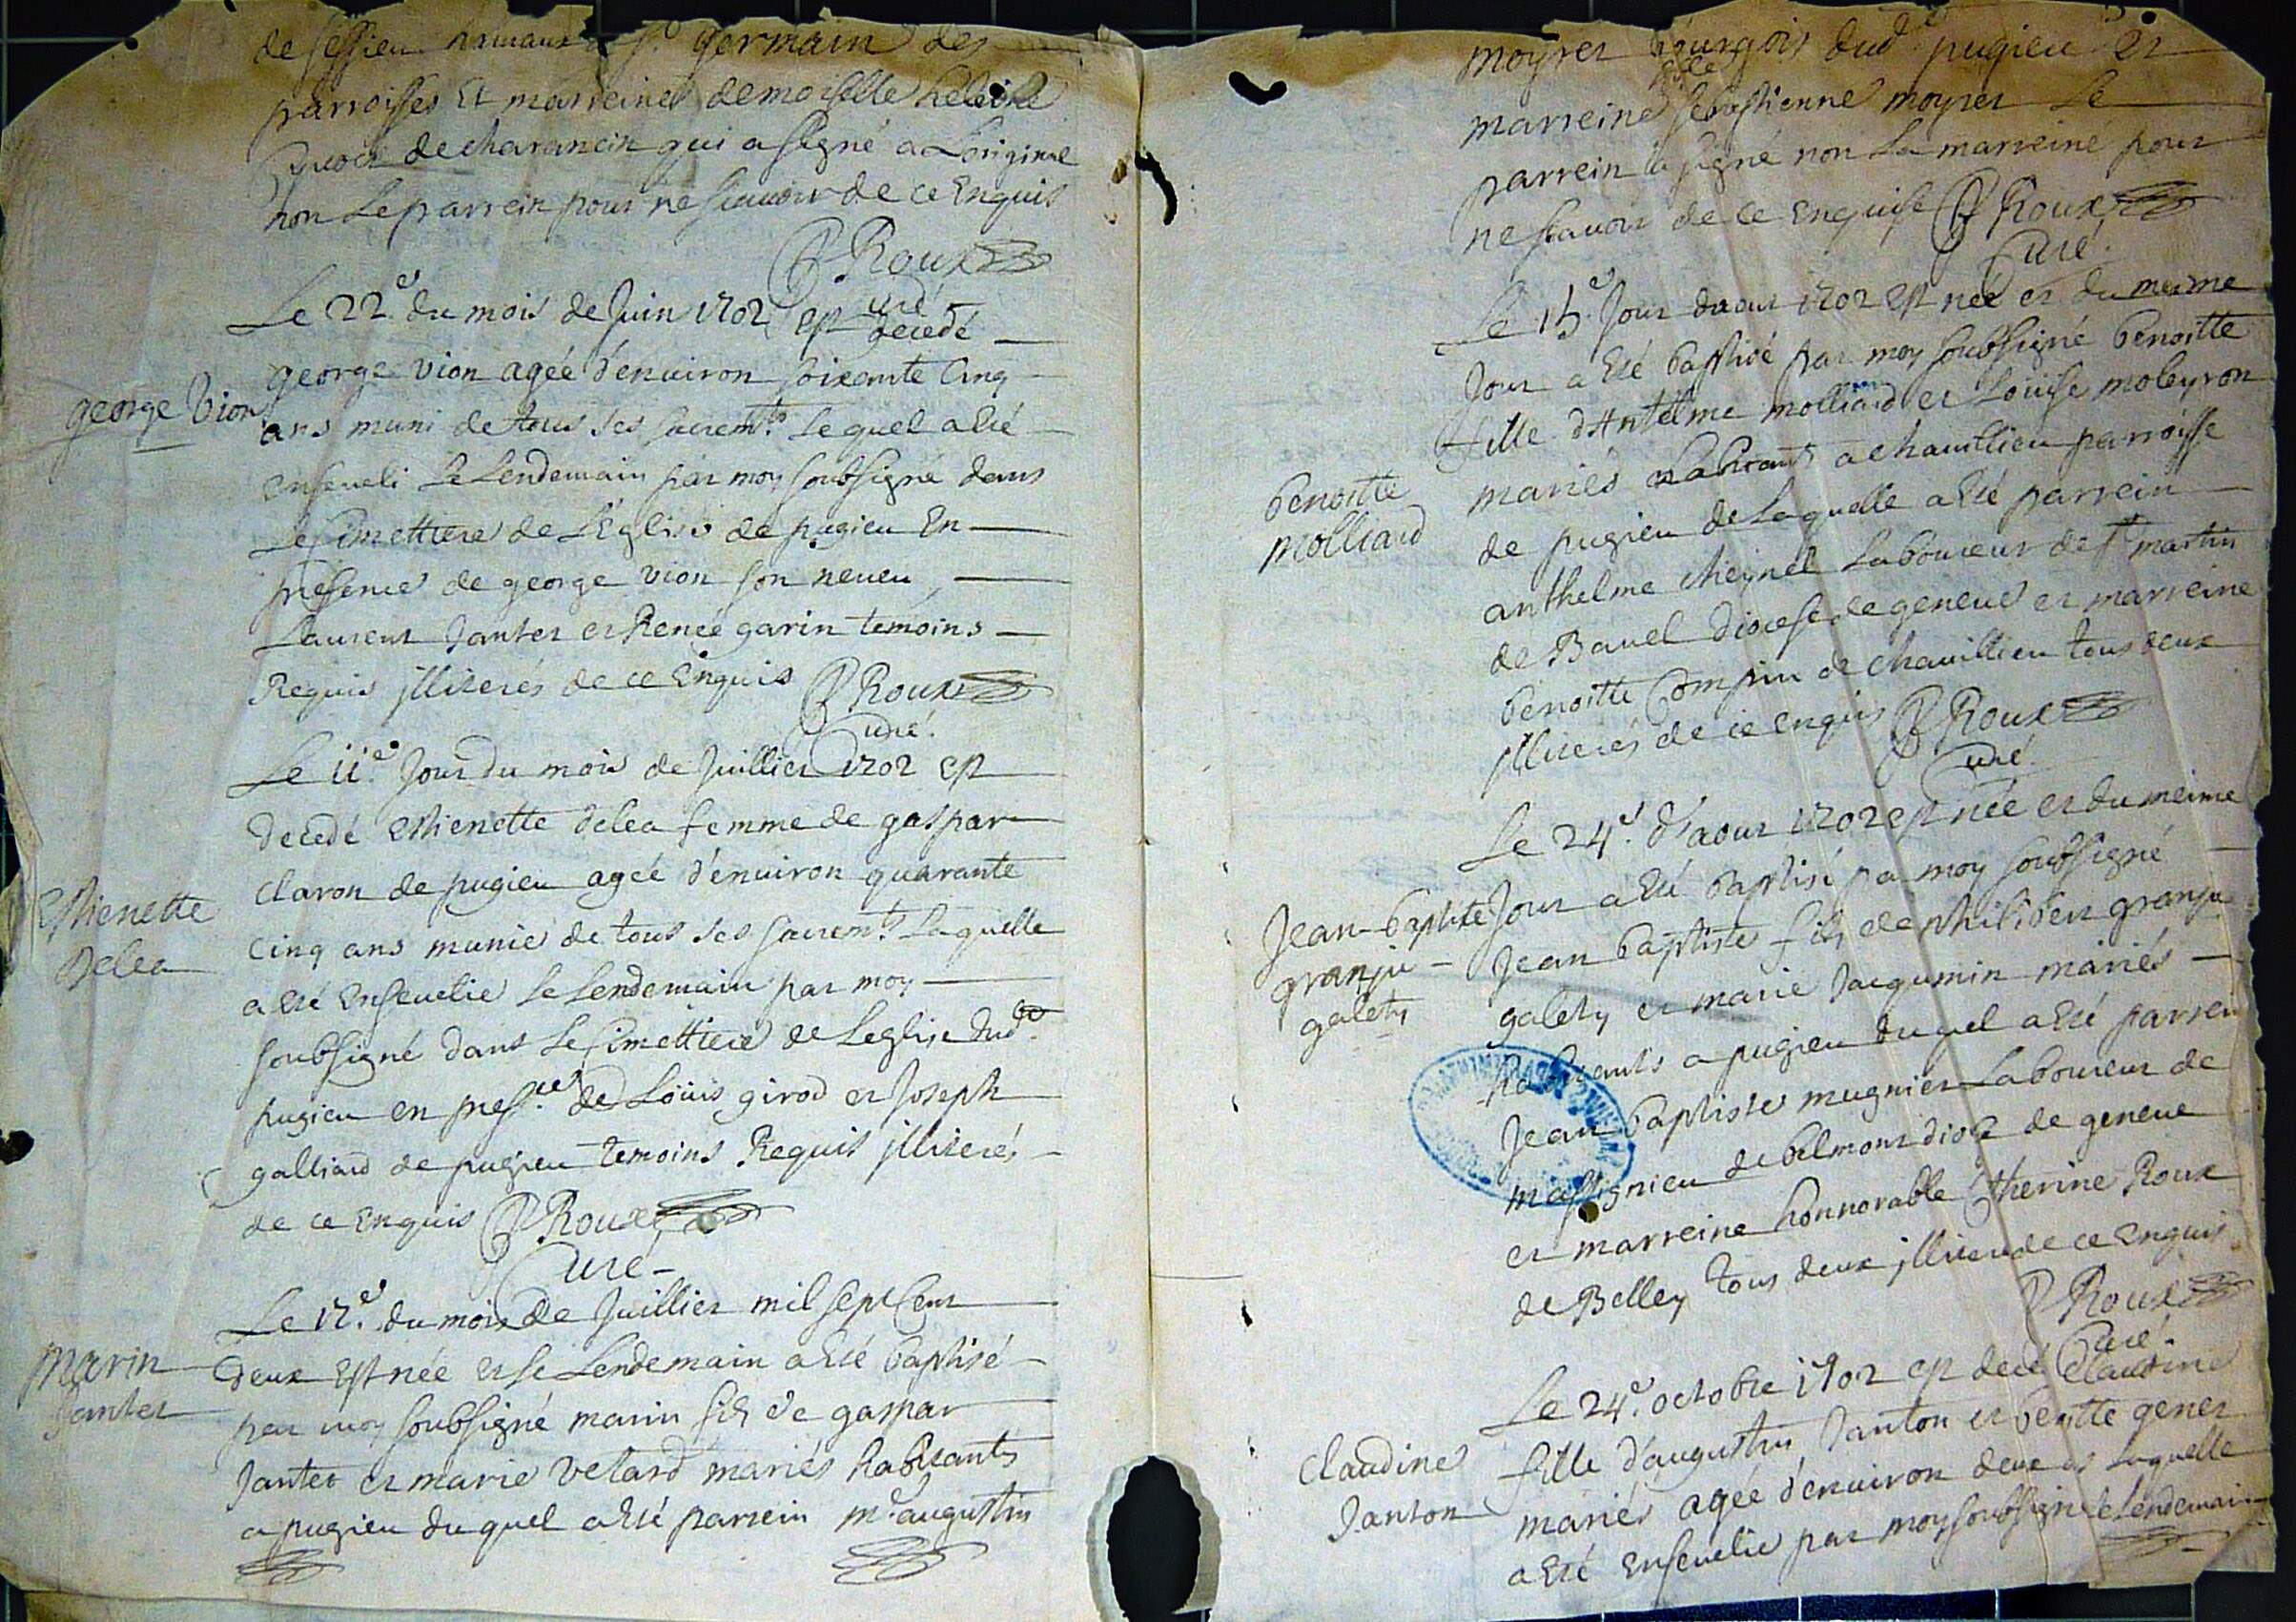 de Sessieu st. germain des
parroisses Et marreine demoiselle heleine
de charancin qui a signé a Loriginal
non Le parrein pour ne scavoir de ce Enquis
P Roux
Curé
Le 22e. du mois de Juin 1702 est decedé
george Vion
george vion agée d'enuiron soixante Cinq
ans muni de tous ses sacremts. Lequel a Eté
enseueli Le Lendemain par moy soubsigné dans
Le Cimettiere de L'Eglise de pugieu En
presence de george vion son neueu,
Laurent Jantet et Renée garin temoins
Requis jlliterés de ce Enquis P Roux
Curé.
Le 11e. Jour du mois de Juillier 1702 est
Decedé Estienette delea femme de gaspar
Estienette
Delea
Claron de pugieu agée d'enuiron quarante
Cinq ans munie de tous ses sacremts. Laquelle
a Eté Enseuelie Le Lendemain par moy
soubsigné dans Le Cimettiere de Leglise dudt.
pugieu en presce. de Loüis girod et Joseph
galliard de pugieu temoins Requis jlliterés
de ce Enquis P Roux
Curé
Le 17e. du mois de Juillier mil sept Cent
Marin
Jantet
deux Est née et le Lendemain a Eté baptisé
par moy soubsigné marin fils de gaspar
Jantet et marie vetard mariés habitants
a pugieu duquel a Eté parrein mr. augustin
moyret bourgois dudt. pugieu et
marreine dlle sebastienne moyret Le
parrein a signé non La marreine pour
ne scauoir de ce Enquise P Roux
Curé.
Le 15e. Jour daout 1702 Est née et du mesme
Jour a Eté baptisé par moy soubsigné benoitte
fille d'Antelme molliard et Louise moleyron
benoitte
molliard
mariés habitants a chauillieu parroisse
de pugieu de Laquelle a Eté parrein
anthelme cheynel Laboureur de st martin
de Bauel diocese de geneue et marreine
benoitte Compin de chauillieu tous deux
jlliterés de ce enquis P Roux
Curé.
Le 24e. d'aout 1702 est née et du meime
Jean-baptiste
granju
galety
Jour a Eté baptisé pa moy soubsigné
Jean baptiste fils de philibert granju
galety et marie Jacqumin mariés
habitants a pugieu duquel a Eté parrein
Jean baptiste mugnier Laboureur de
massignieu de belmont diocse de geneue
et marreine honnorable Ctherine Roux
de Belley tous deux jlliter de ce Enquis
P Roux
Curé.
Le 24e. octobre 1702 est decé Claudine
Claudine
Janton
fille d'augustin Janton et benoitte genet
mariés agée d'enuiron deux as Laquelle
a Eté Enseuelie par moy soubsigné Le Lendemain